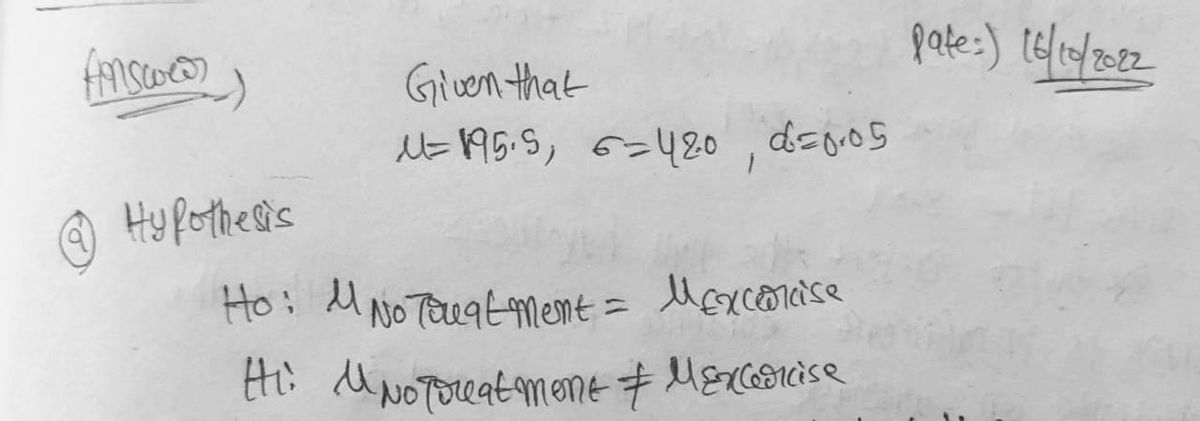 Date:) 16/10/2022
Answer)
Given that
μ=195.5, σ=42.0, α=0.05
(a) Hypothesis
Ho: μ No Treatment = μ Excercise
H1: μ No Treatment ≠ μ Excercise